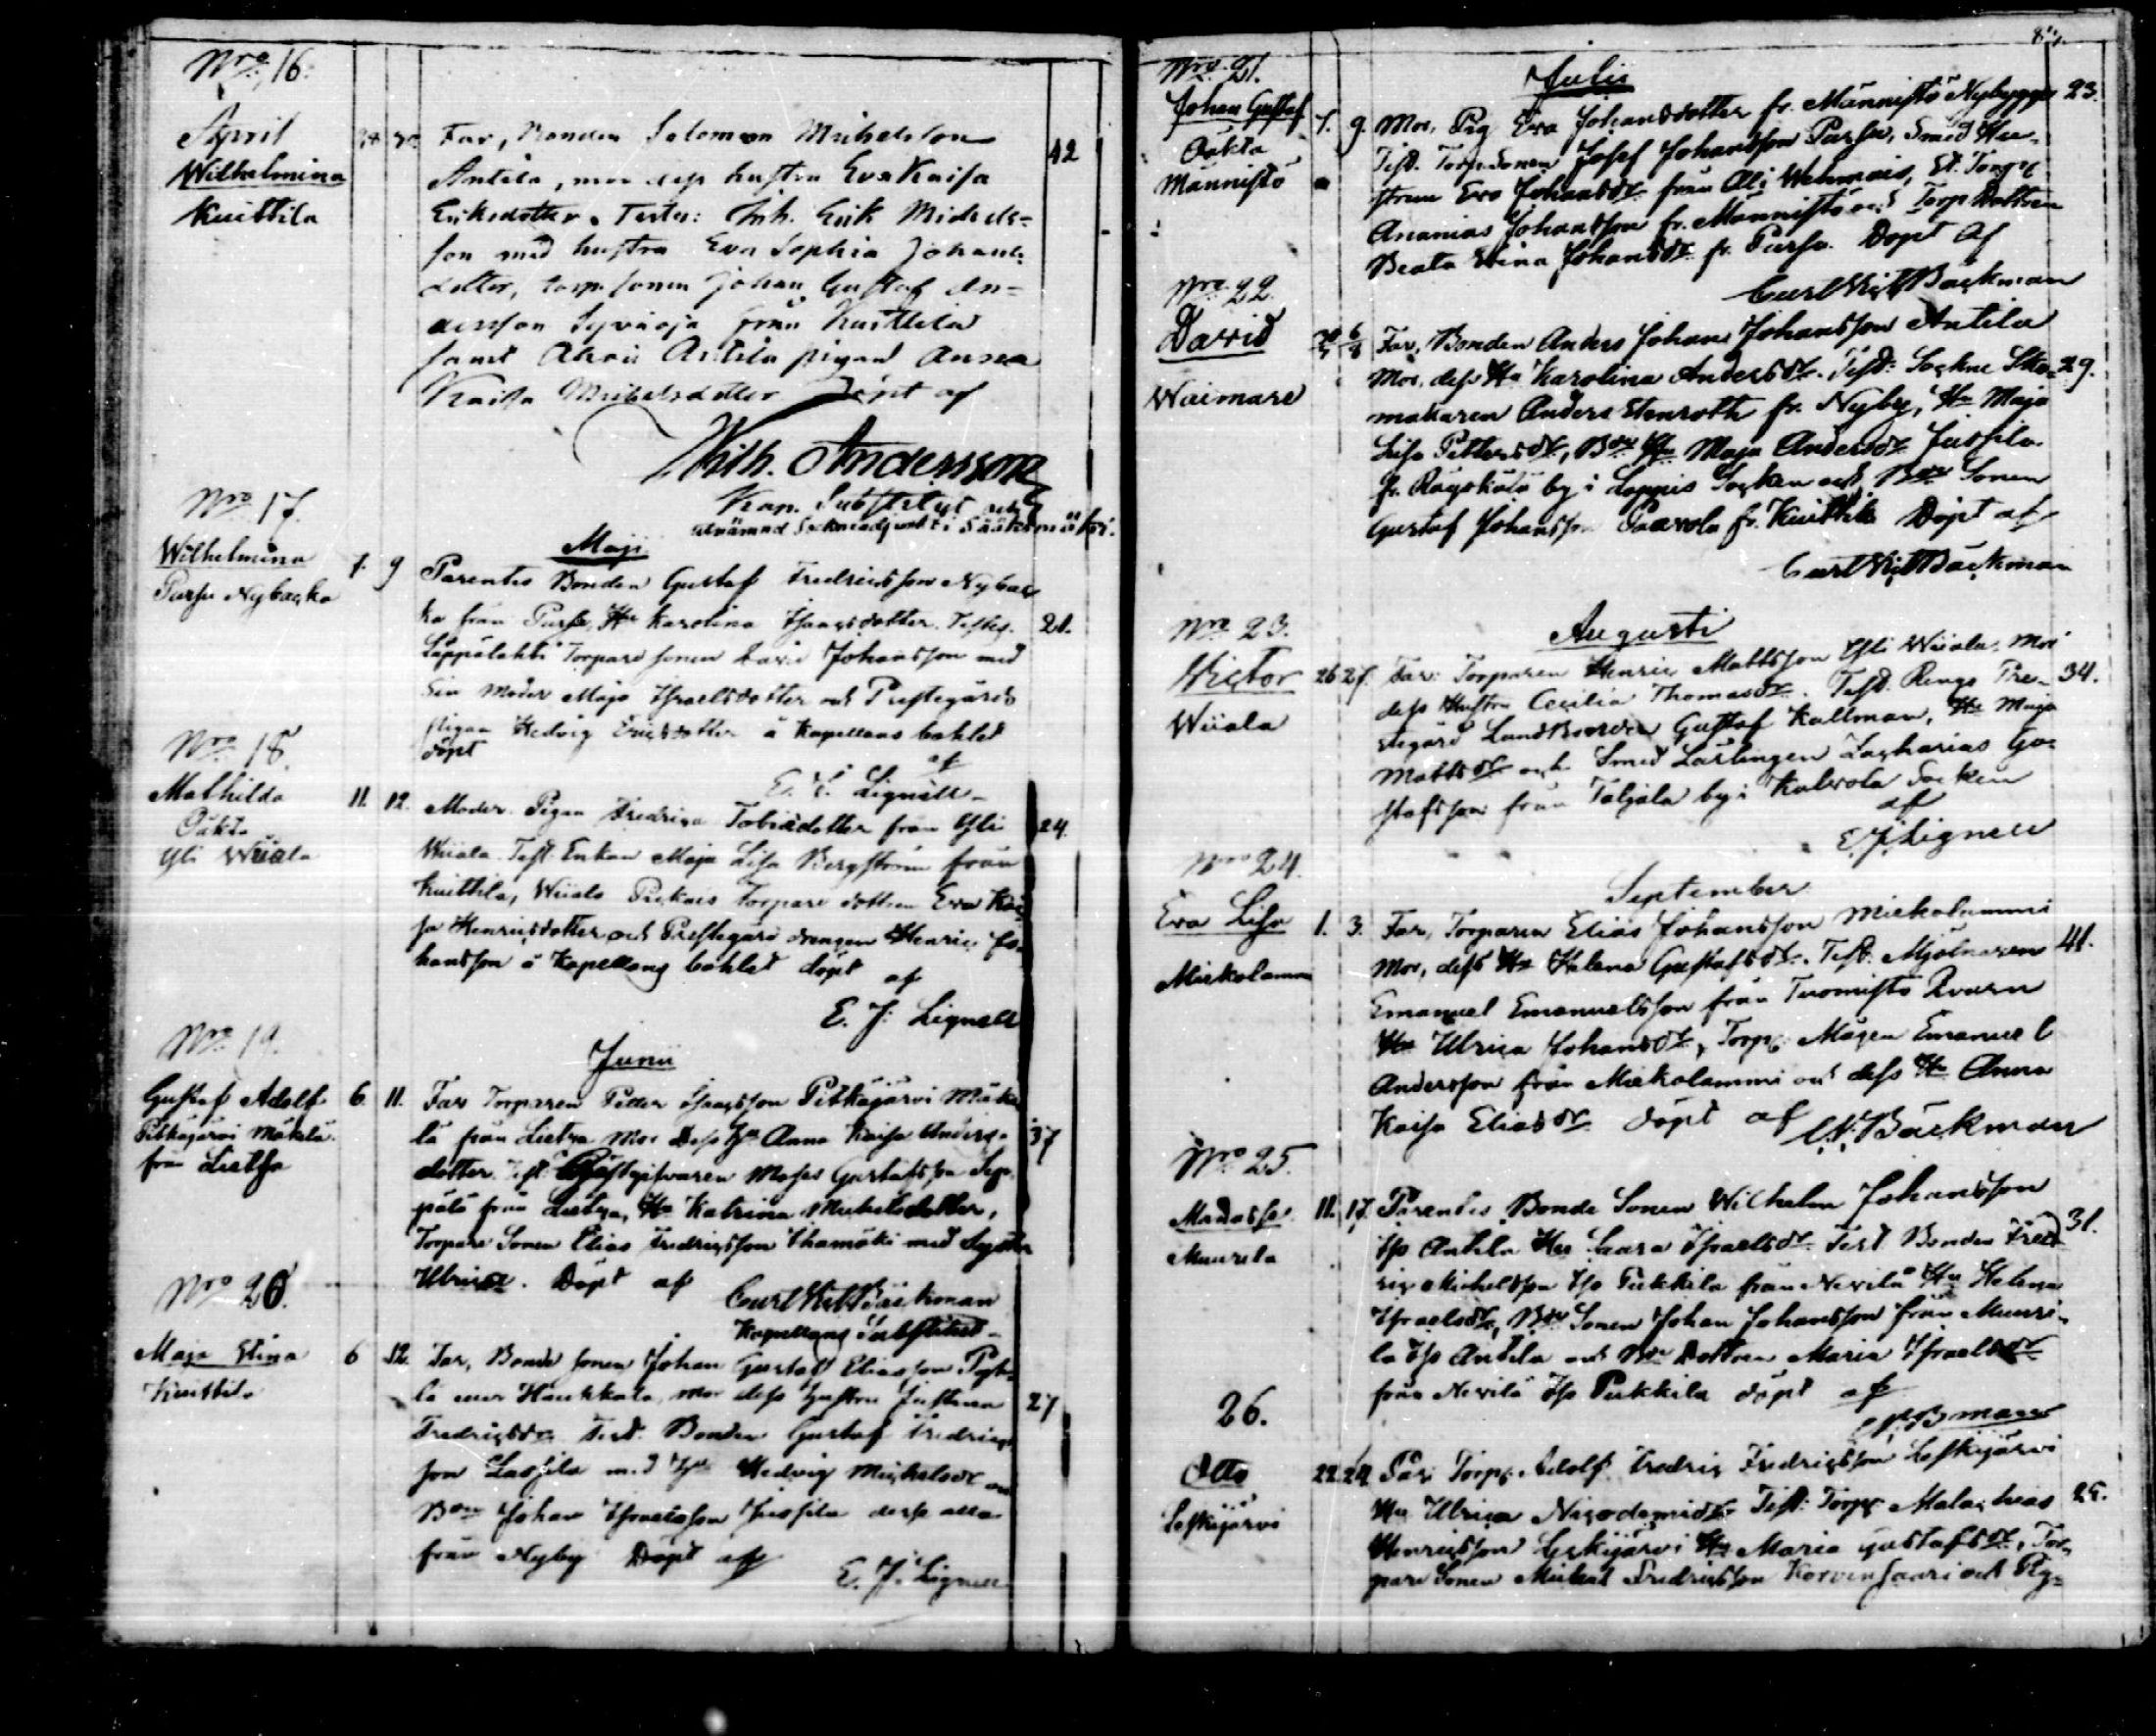 Nro 16.
April
Wilhelmina
Kuittila
30 Far, Bonden Salomon Michelsson 42
Antila, mor dess hustru Eva Kaisa
Eriksdotter. Testes: Inh. Erik Michels-
son med hustru Eva Sophia Johans-
dotter, torp. sonen Johan Gustaf An-
dersson från Kuittila
samt Antila pigan Anna
Kaisa Michelsdotter Döpt af
Wilh. Andersson
Kap. Substitut och
utnämnd Sockneadjunkt i Sääksmäki.
Nro 17.
Maji
Wilhelmina
Pursu Nybacka
7. 9 Parentes Bonden Gustaf Fredricsson Nybac-
ka från Pursu, Hu Karolina Isaacsdotter. Testes. 21.
Lappalahti Torpare sonen David Johansson med
Sin Moder Maja Israelsdotter och Prestegårds
pigan Hedvig Ericsdotter å Kapellans bohlet
döpt af
E. J. Lignell
Nro 18.
Mathilda
Oäkta
Yli Wiiala
11. 12. Moder. Pigan Fredrica Tobiasdotter från Yli 24.
Wiiala. Test. Enkan Maja Lisa Bergström från
Kuittila, Wiiala Torpare dottren Eva Kai-
sa Henricsdotter och Prestegårds drengen Henric Jo-
hansson å Kapellans bohlet döpt af
E. J. Lignell
Nro 19.
Junii
Gustaf Adolf
Pitkäjärvi Mäkelä
från Lietsa
6. 11. Far Torparen Petter Isacsson Pitkäjärvi Mäke-
lä från Lietsa Mor Dess Hu Anna Kaisa Anders- 37
dotter. Test. Gästgifvaren Moses Gustafsson Sep-
pälä från Lietsa, Hu Katrina Michelsdotter,
Torpare Sonen Elias Fredricsson Uhamäki med Syster
Ulrica. Döpt af
Carl Vict Bäckman
Kapellans Substitut
Nro 20.
Maja Stina
Kuittila
6 12. Far, Bonde sonen Johan Gustaf Eliasson
mor dess hustru Justina 27
Fredricsdr. Test. Bonden Gustaf Fredrics-
son Lassila med Hu Hedvig Michelsdr och
Bon Johan Israelsson Jussila dessa alla
från Nyby Döpt af
E. J. Lignell
Nro 21.
Julii
Johan Gustaf
Oäkta
Männistö
7. 9. Mor, Pig Eva Johansdotter fr. Männistö Nybygge 23.
Test. Torp. Sonen Josef Johansson Pursu, Smed Hu-
strun Eva Johansdr från Ali Wehmais, St. Torp
Ananias Johansson fr. Männistö och Torp Dottren
Beata Stina Johansdr fr. Pursu. Döpt af
Carl Vict Bäckman
Nro 22.
David
Waimare
Far, Bonden Anders Johan Johansson Antila
Mor, dess Hu Karolina Andersdr. Test: Sockne Sko- 29.
makaren Anders Stenroth fr. Nyby, Hu Maja
Lisa Pettersdr, Maja Andersdr Jussila
fr. by i Loppis Socken och Bde Sonen
Gustaf Johansson Paavola fr. Kuittila Döpt af
Carl Vict Bäckman
Nro 23.
Augusti
Victor
Wiiala
26 27. Far: Torparen Henric Mattsson Yli Wiiala. Mor 34.
dess Hustru Cecilia Thomasdr. Test. Rengo Pre-
stegård LandBonden Gustaf Kallman, Hu Maja
Mattsdr och Smed Lärlingen Zacharias Gu-
stafsson från Taljala by i Kalvola Socken
af
E. J. Lignell
Nro 24.
September
Eva Lisa
Miekolammi
1. 3. Far, Torparen Elias Johansson Miekolammi
Mor, dess Hu Helena Gustafsdr. Test. Mjölnaren 41.
Emanuel Emanuelsson från Tuomisto Qvarn
Hu Ulrica Johansdr, Torp. Mågen Emanuel
Andersson från Miekolammi och dess Hu Anna
Kaisa Eliasdr Döpt af
C. V. Bäckman
Nro 25.
Manasse
Muurila
11. 17. Parentes Bonde Sonen Wilhelm Johansson
Antila Hu Saara Israelsdr. Test Bonden Fred- 31.
ric Michelsson Pukkila från Nevilä Hu Helena
Israelsdr, Bde Sonen Johan Johansson från Muuri-
la Antila och Bde Dottren Maria Israelsdr
från Nevilä Pukkila döpt af
26.
Otto
Leskijärvi
22. 24 Par: Torp. Adolf Fredric Fredricsson Leskijärvi
Hu Ulrica Nicodemidr Test: Torp. Malachias 25.
Henricsson Leskijärvi Hu Maria Gustafsdr, Tor-
pare Sonen Michel Fredricsson Korvensaari och Pig-